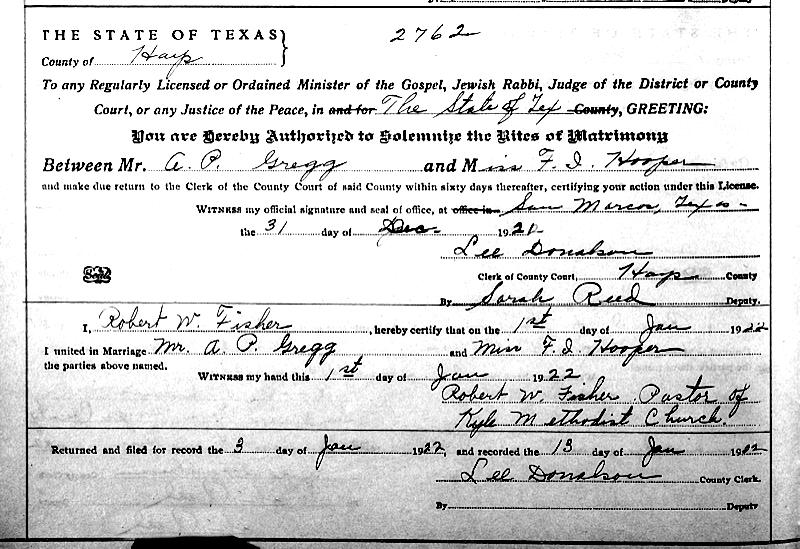 THE STATE OF TEXAS}
2762
County of Hays
To any Regularly Licensed or Ordained Minister of the Gospel, Jewish Rabbi, Judge of the District or County
Court, or any Justice of the Peace, in and for The State of Tex County, GREETING:
You are Hereby Authorized to Solemnize the Rites of Matrimony
Between Mr. A. P. Gregg and Miss F. I. Hooper
and make due return to the Clerk of the County Court of said County within sixty days thereafter, certifying your action under this License.
WITNESS my official signature and seal of office, at office in San Marcos, Texas
the 31 day of Dec 1921
Lee Donalson
Seal
Clerk of County Court, Hays County
By Sarah Reed Deputy.
I, Robert W. Fisher, hereby certify that on the 1st day of Jan 1922
I united in Marriage Mr. A. P. Gregg and Miss F. I. Hooper
the parties above named.
WITNESS my hand this 1st day of Jan 1922
Robert W. Fisher, Pastor of
Kyle Methodist Church.
Returned and filed for record the 3 day of Jan 1922, and recorded the 13 day of Jan 1922
Lee Donalson County Clerk.
By Deputy